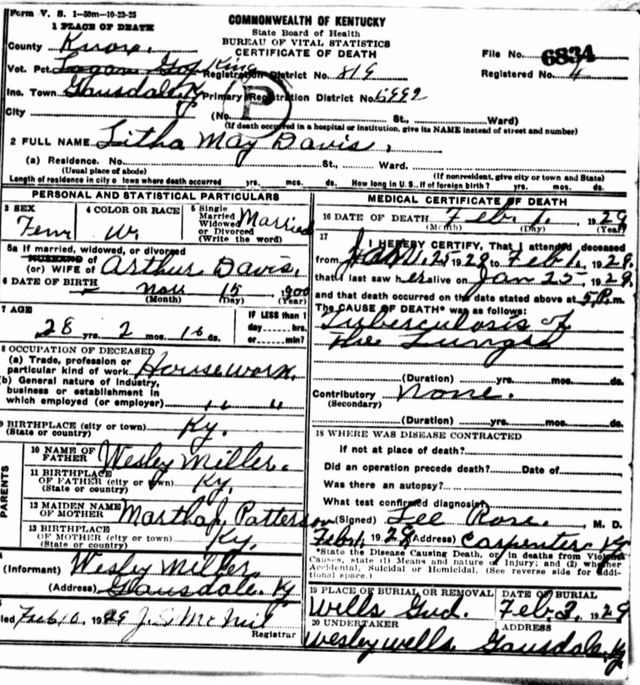 Form V. S. 1-50m-10-23-25
COMMONWEALTH OF KENTUCKY
State Board of Health
BUREAU OF VITAL STATISTICS
CERTIFICATE OF DEATH
1 PLACE OF DEATH
County Knox.
File No. 6834
Vot. Pct. Logan Gap King Registration District No. 819
Registered No. 4
Inc. Town Gausdale Ky Primary Registration District No. 6992
P
City (No. St., Ward)
(If death occurred in a hospital or institution, give its NAME instead of street and number)
2 FULL NAME Litha May Davis.
(a) Residence. No. St., Ward.
(Usual place of abode) (If nonresident, give city or town and State)
Length of residence in city or town where death occurred yrs. mos. ds. How long in U.S., if of foreign birth? yrs. mos. ds.
PERSONAL AND STATISTICAL PARTICULARS
3 SEX
Fem
4 COLOR OR RACE
W.
5 Single
Married
Widowed
or Divorced
(Write the word)
Married
5a If married, widowed, or divorced
HUSBAND of
(or) WIFE of Arthur Davis.
6 DATE OF BIRTH Nov 15 1900
(Month) (Day) (Year)
7 AGE
28 yrs. 2 mos. 16 ds.
IF LESS than 1
day hrs.
or min?
8 OCCUPATION OF DECEASED
(a) Trade, profession or
particular kind of work Housework.
(b) General nature of industry,
business or establishment in
which employed (or employer) " "
9 BIRTHPLACE (city or town)
(State or country) Ky.
PARENTS
10 NAME OF
FATHER Wesley Miller.
11 BIRTHPLACE
OF FATHER (city or town)
(State or country) Ky.
12 MAIDEN NAME
OF MOTHER Martha J. Patterson
13 BIRTHPLACE
OF MOTHER (city or town)
(State or country) Ky.
(Informant) Wesley Miller
(Address) Gausdale. Ky
Filed Feb 10 1929 J. S. McNeil
Registrar
MEDICAL CERTIFICATE OF DEATH
16 DATE OF DEATH Feb. 1. 1929
(Month) (Day) (Year)
17
I HEREBY CERTIFY, That I attended deceased
from Jan. 25 1928 to Feb 1. 1929.
that I last saw her alive on Jan 25 1929.
and that death occurred on the date stated above at 5 P.m.
The CAUSE OF DEATH* was as follows:
Tuberculosis of
the Lungs
(Duration) yrs. mos. ds.
Contributory None.
(Secondary)
(Duration) yrs. mos. ds.
18 WHERE WAS DISEASE CONTRACTED
If not at place of death?
Did an operation precede death? Date of
Was there an autopsy?
What test confirmed diagnosis?
(Signed) Lee Rose. M. D.
Feb 1, 1929 (Address) Carpenter Ky
*State the Disease Causing Death, or, in deaths from Violent
Causes, state (1) Means and nature of Injury; and (2) whether
Accidental, Suicidal or Homicidal. (See reverse side for addi-
tional space.)
19 PLACE OF BURIAL OR REMOVAL
Wells Grd.
DATE OF BURIAL
Feb. 3. 1929
20 UNDERTAKER
Wesley Wells
ADDRESS
Gausdale. Ky